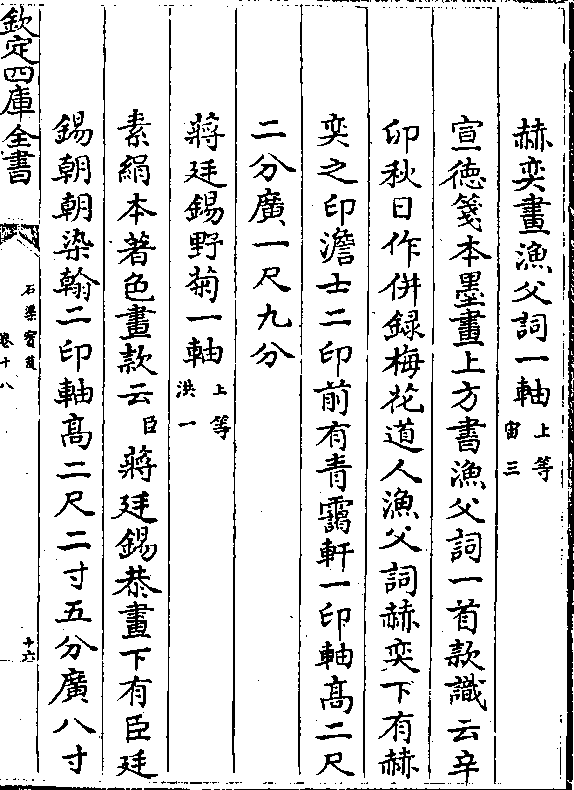 赫奕畫漁父詞一軸上等宙三
宣徳箋本墨畫上方書漁父詞一首款識云辛
卯秋日作併録梅花道人漁父詞赫奕下有赫
奕之印澹士二印前有青靄軒一印軸髙二尺
二分廣一尺九分
蔣廷錫野菊一軸上等洪一
素絹本著色畫款云臣蔣廷錫恭畫下有臣廷
錫朝朝染翰二印軸髙二尺二寸五分廣八寸
欽定四庫全書
石渠寳笈
卷十八
十六